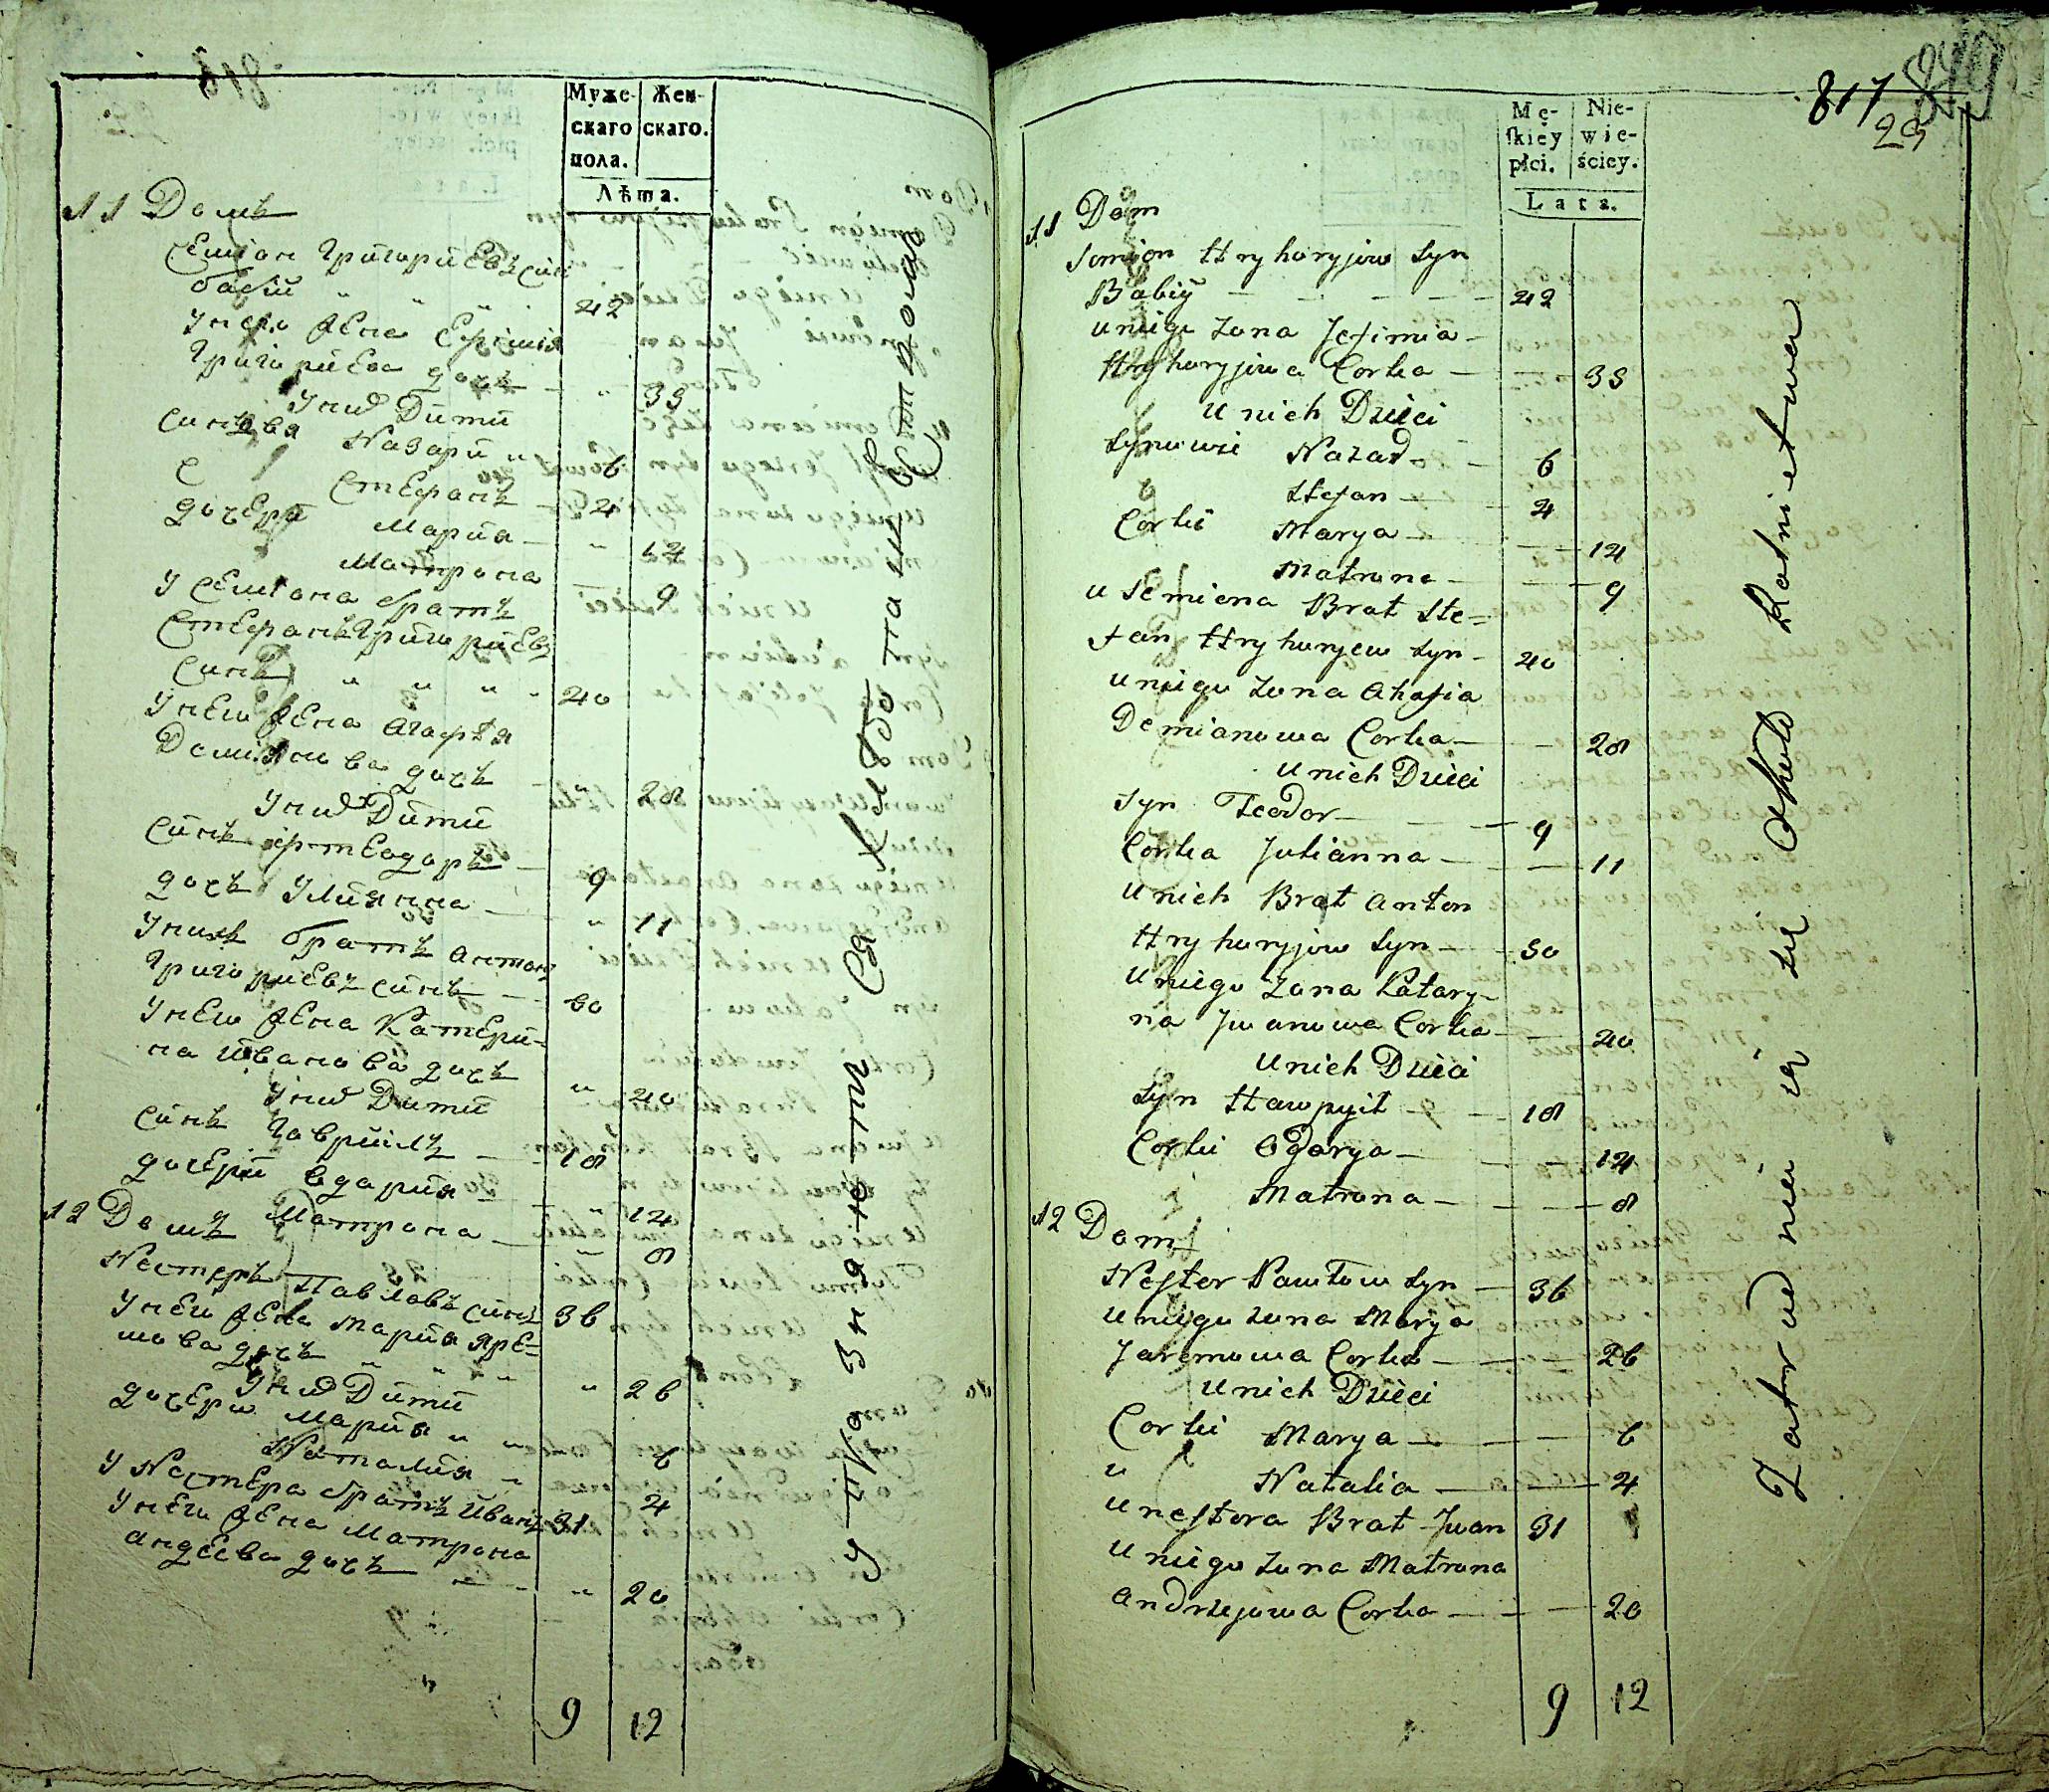 Муже-
скаго
пола.
Жен-
скаго.
Лѣта.
11 Домъ
Семіон Григориевъ синъ
Бабий " " " 42
у него жена Ефимия
Григориева дочъ — " 35
у них Дити
Синовя Назарй " 6
Стефанъ — 4
дочери Мария — " 14
Матрона 9
У Семиона братъ
Стефанъ Григориевъ
Синъ " " " " 40
у нею жена Агафия
Демиянова дочъ " 28
у них Дити
Синъ Фтеодоръ — 9
дочъ Улияна — " 11
У них братъ Антонъ
Григориевъ синъ — 60
у нею жена Катери-
на Иванова дочъ " 40
у них Дити
Синъ Гаврйилъ — 18
дочерй Одария — " 14
Матрона — " 8
12 Домъ
Нестеръ Павловъ синъ 36
у нею жена Мария Яре=
мова дочъ " " " " 26
у них Дити
дочери Мария " " 6
Наталия " 4
У Нестера братъ Иванъ 31
у нею жена Матрона
Андеева дочъ — " 20
9 12
У праздняюти ся хлѣботаметвом
817
29
Mę-
ſkiey
płci.
Nie-
wie-
ściey.
Lata.
11 Dom
Semion Hryhoryjow Syn
Babiy — — — — — 42
u niego Zona Jefimia —
Hryhoryjowa Corka — — 35
u nich Dzieci
Synowie Nazar — — 6
Stefan — 4
Corki Marya — — 14
Matrona — — 9
u Semiona Brat Ste=
fan Hryhoryew Syn — 40
u niego Zona Ahafia
Demianowa Corka — — 28
u nich Dzieci
Syn Teodor — — — 9
Corka Julianna — — 11
u nich Brat Anton
Hryhoryjow Syn — — 50
u niego Zona Katary-
na Jwanowa Corka — — 40
u nich Dzieci
Syn Hawryił — — 18
Corki Odarya — — — 14
Matrona — — — 8
12 Dom
Nestor Pawłow Syn — 36
u niego Zona Marya
Jaremowa Corka — — — 26
u nich Dzieci
Corki Marya — — — 6
" Natalia — — 4
u Nestora Brat Jwan 31
u niego Zona Matrona
Andrzejowa Corka — — — 20
9 12
Zatrud nia ią się Rolnictwa